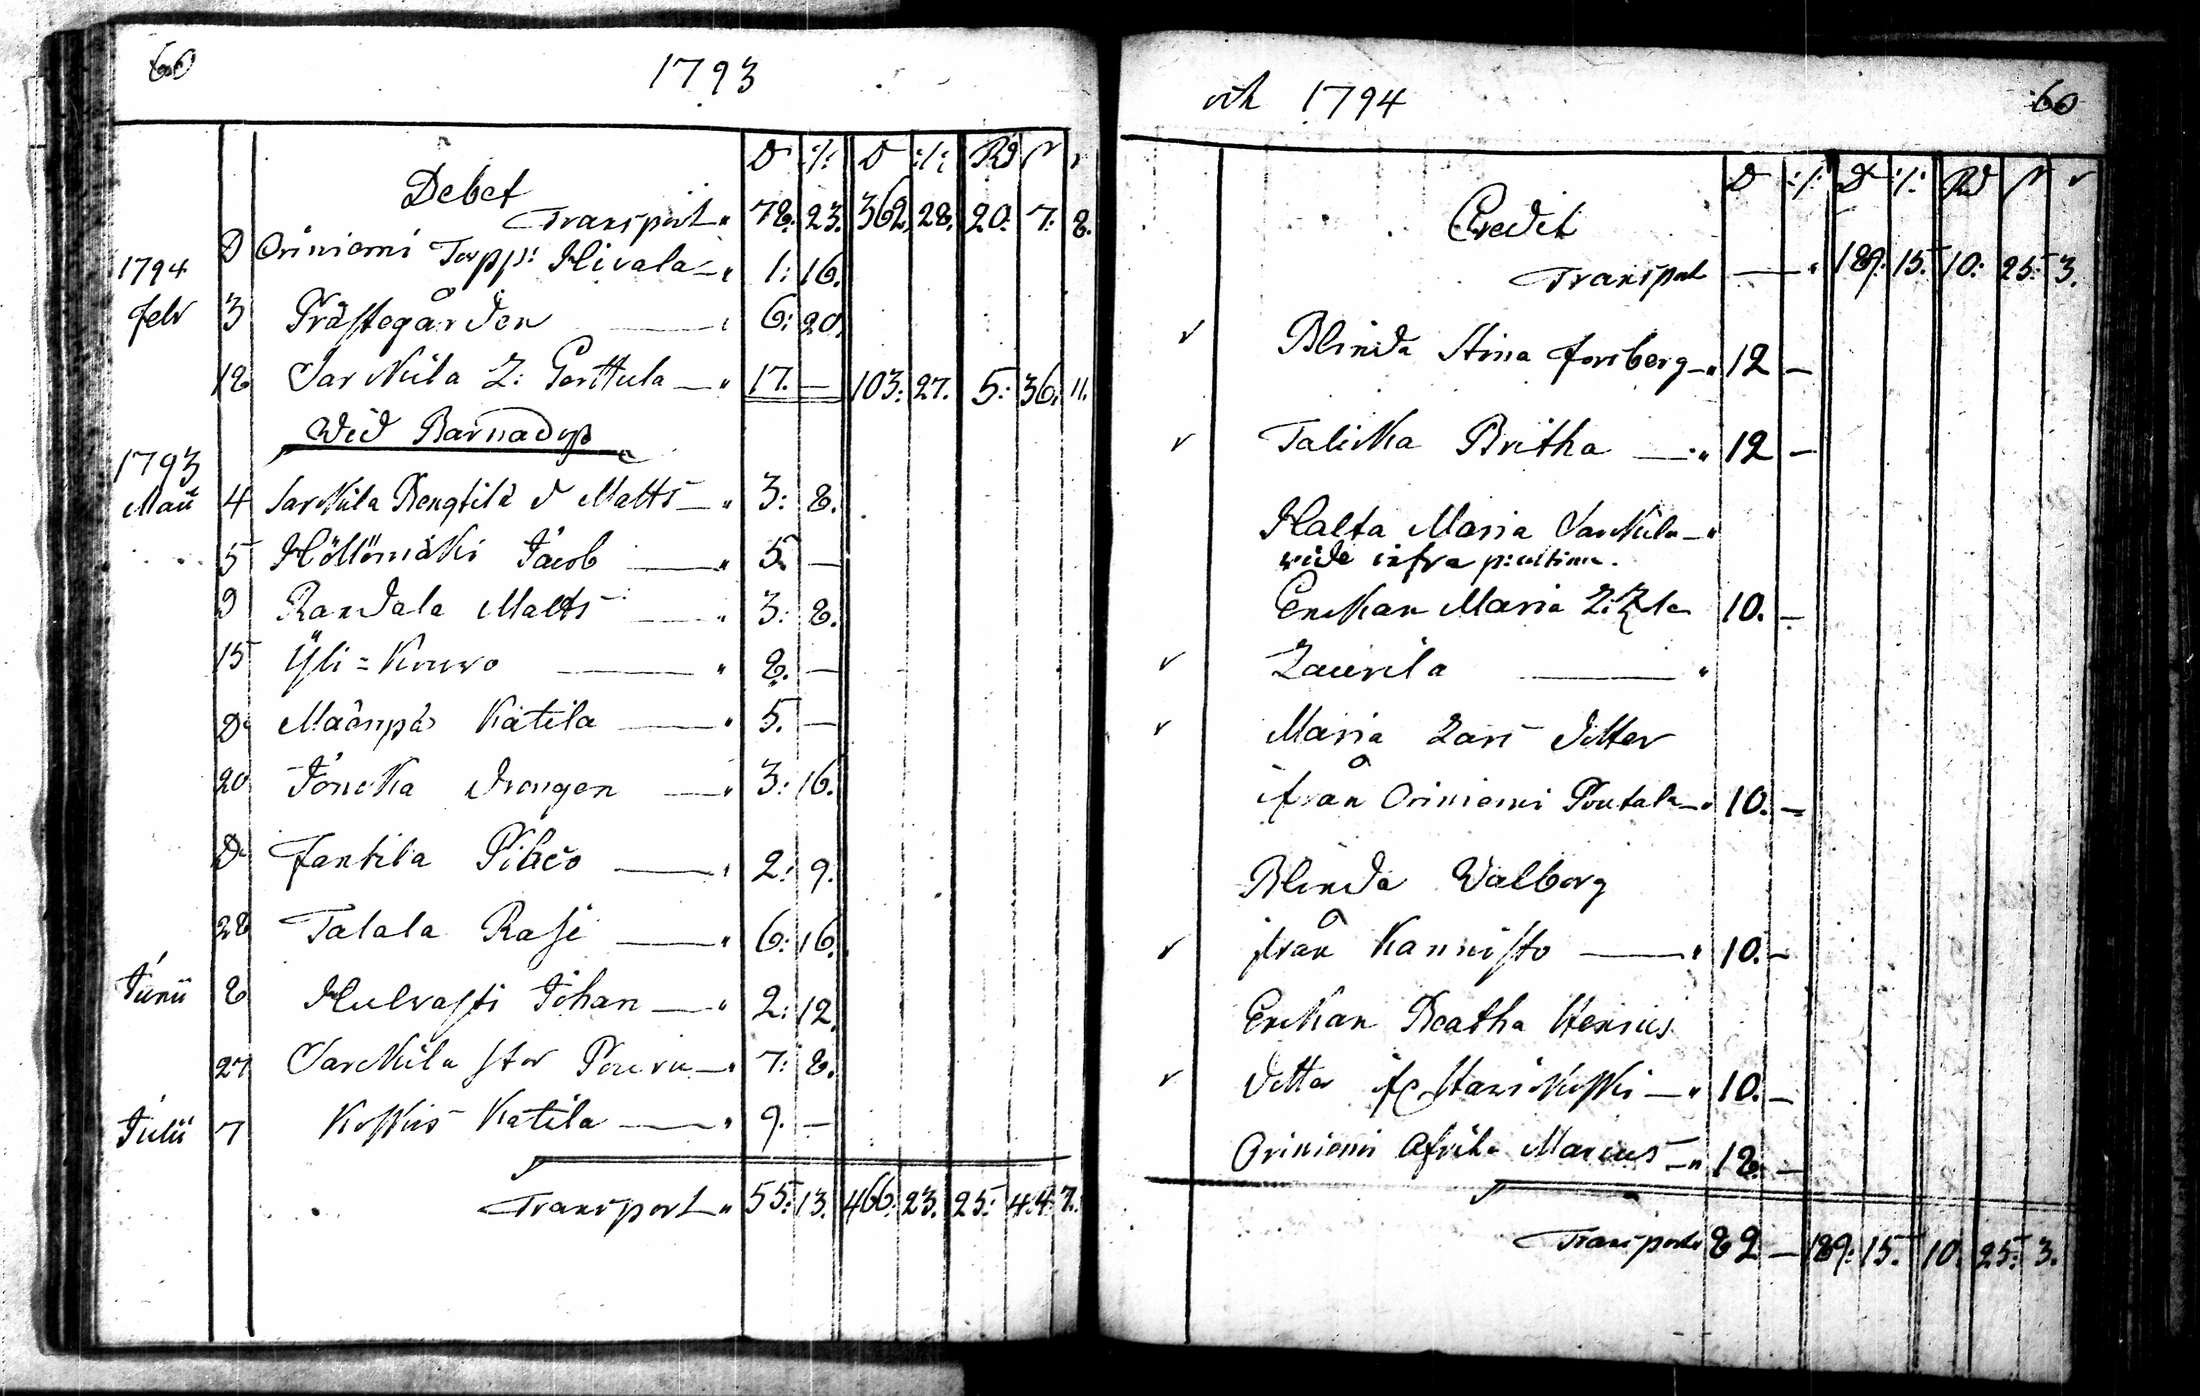 60
1793
D :/: D :/: Rd
Debet
Transport 78. 23. 362. 28. 20. 7. 8.
1794 D Oriniemi Torpp: Hivala 1: 16.
Febr 3 Prästegården 6: 20.
18 Sarkila L: Perttula 17. — 103: 27. 5: 36. 11.
Wid Barnadop
1793
Maii 4 Sarkila Bengtila d Matts 3: 8.
5 Höllömäki Jacob 5. —
9 Randala Matts 3: 8.
15 Yli=Kouvo 8. —
Do Määnpä Katila 5. —
20 Drengen 3: 16.
Do 2: 9.
28 Talala Rasi 6: 16.
Junii 8 Hulvasti Johan 2: 12.
27 Sarkila stor Pouru 7: 8.
Julii 7 Koskis Katila 9. —
Transport 55: 13. 466: 23. 25: 44. 7.
och 1794
60
D :/: D :/: Rd
Credit
Transport 189: 15. 10: 25: 3.
Blinda Stina Forsberg 12 —
Britha 12 —
Halta Maria Sarkila
vide infra p:ultim.
Enkan Maria 10. —
Laurila
Maria Lars dotter
ifrån Oriniemi Poutala 10. —
Blinda Walborg
från Kannisto 10. —
Enkan Beatha Henrics
dotter 10. —
Oriniemi Marcus 18. —
Transport 82 — 189: 15. 10: 25: 3.